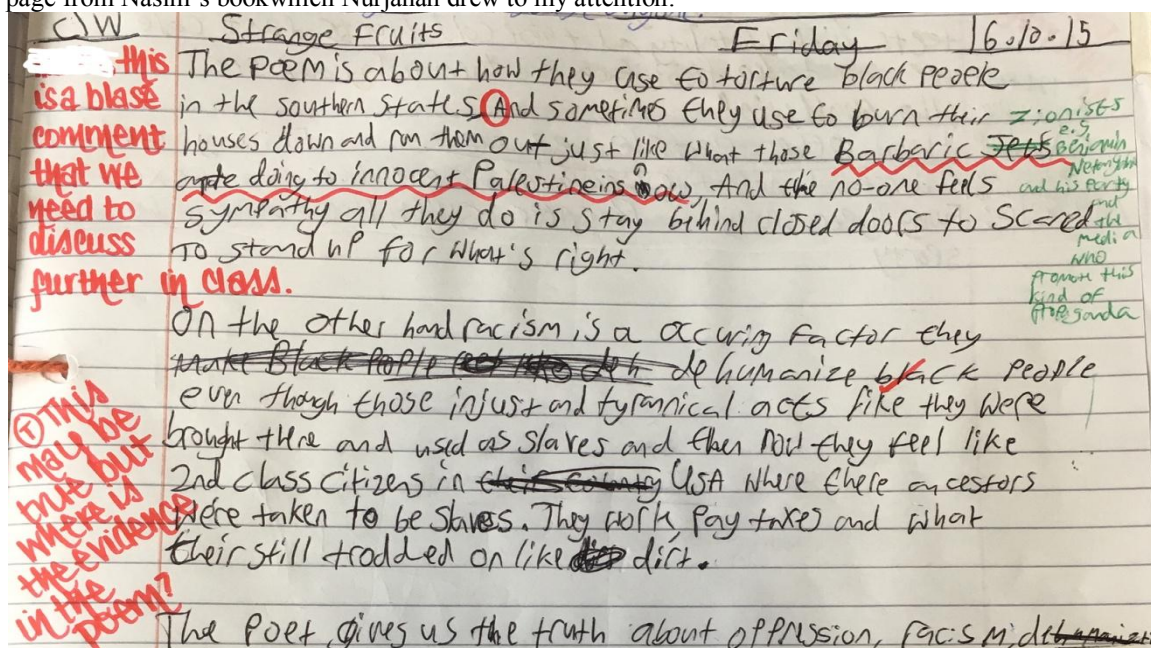 page from Nasim's book which Nurjahan drew to my attention.
C/W Strange Fruits Friday 16.10.15
The poem is about how they use to torture black people
in the southern states And sometimes they use to burn their
houses down and run them out just like what those Barbaric Jews
are doing to innocent Palestineins now. And the no-one feels
sympathy all they do is stay behind closed doors to scared
to stand up for what's right.
this
is a blasé
comment
that we
need to
discuss
further in class.
zionists
e.g
Benjamin
Netenyahu
and his party
and
the
media
who
promote this
kind of
propaganda
On the other hand racism is a occuring factor they
Make Black People deh dehumanize black people
even though those injust and tyrannical acts like they were
brought there and used as slaves and then now they feel like
2nd class citizens in their country USA where there ancestors
were taken to be slaves. They work, pay taxes and what
their still trodded on like dirt.
T This
may be
true but
where is
the evidence
in the
poem?
The Poet gives us the truth about oppression, racism,